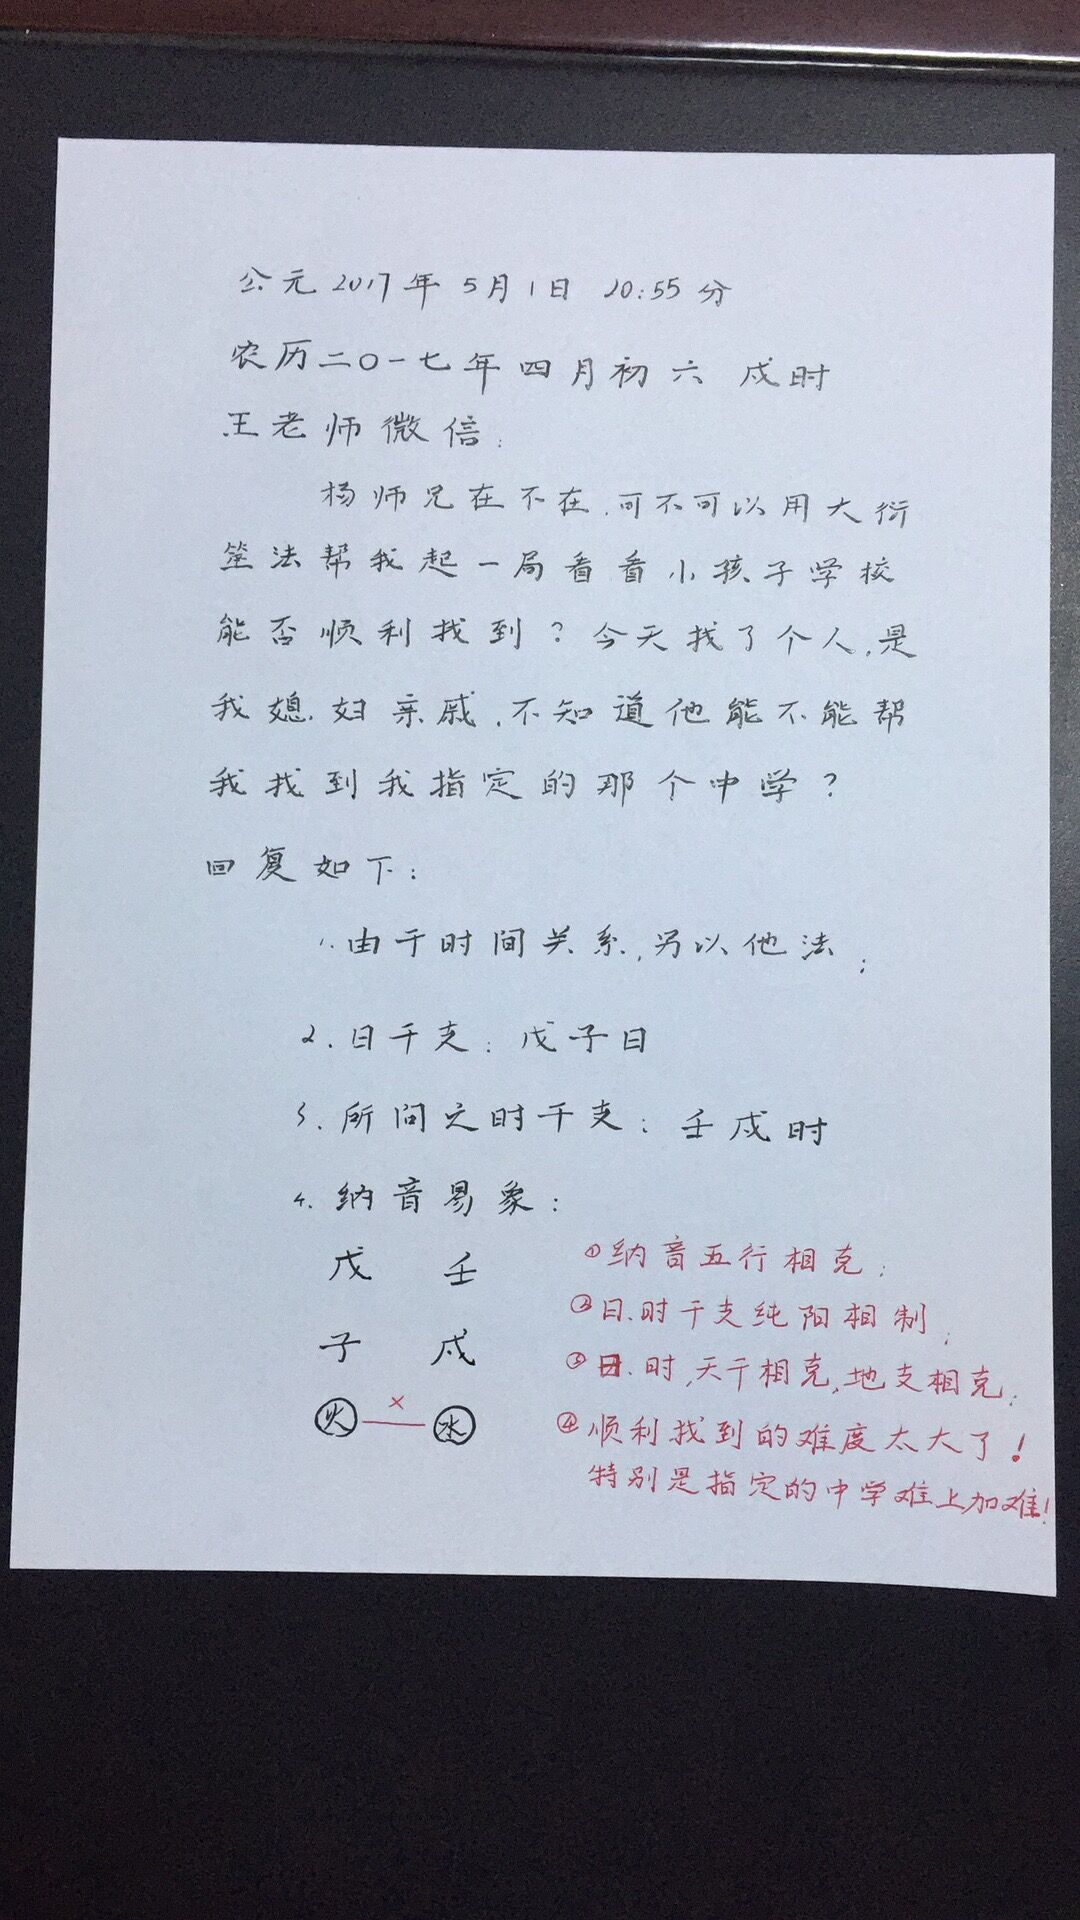 公元2017年5月1日 20:55分
农历二〇一七年四月初六 戌时
王老师微信:
杨师兄在不在,可不可以用大衍
筮法帮我起一局看看小孩子学校
能否顺利找到?今天找了个人,是
我媳妇亲戚,不知道他能不能帮
我找到我指定的那个中学?
回复如下:
1.由于时间关系,另以他法;
2.日干支:戊子日
3.所问之时干支:壬戌时
4.纳音易象:
戊 壬
子 戌
火 × 水
①纳音五行相克;
②日.时干支纯阳相制;
③日.时,天干相克,地支相克;
④顺利找到的难度太大了!
特别是指定的中学难上加难!